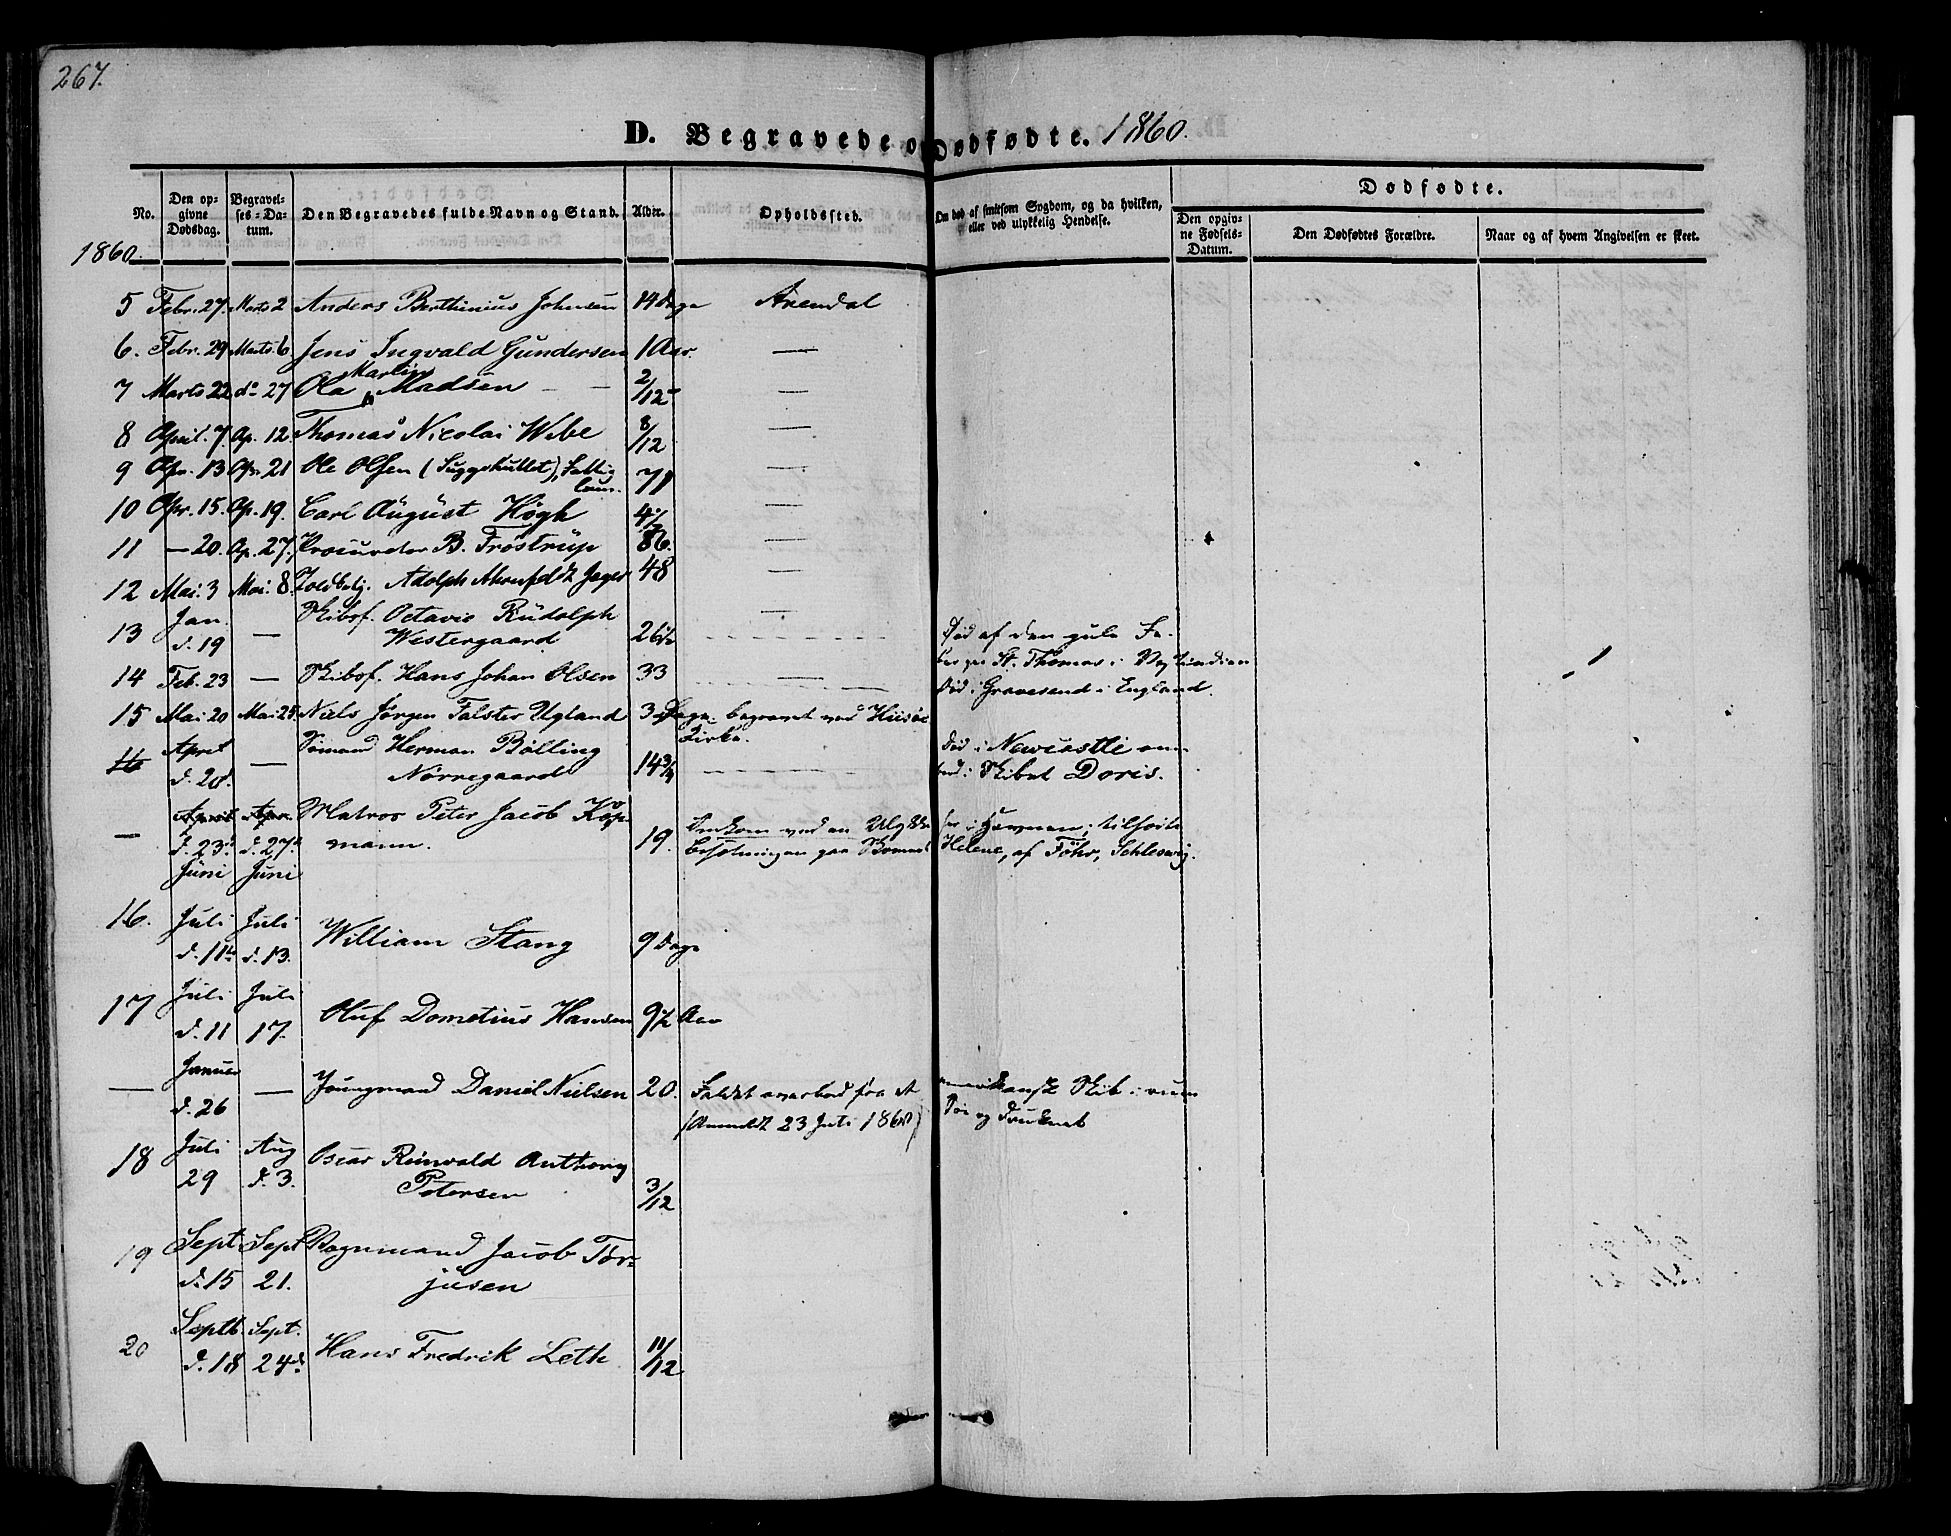 267.
D. Begravede o Dødfødte. 1860.
No. Den opgivne Dødsdag. Begravelses-Datum. Den Begravedes fulde Navn og Stand. Alder. Opholdssted. Om død af smitsom Sygdom, og da hvilken, eller ved ulykkelig Hendelse. Dødfødte.
Den opgivne Fødsels-Datum. Den Dødfødtes Forældre. Naar og af hvem Angivelsen er skeet.
1860.
5 Febr. 27. Marts 2 Anders Berthinius Johnsen 14 Dage Arendal
6. Febr. 29 Marts 6. Jens Ingvald Gundersen 1 Aar. —
Martin
7 Marts 22 do 27 Ola Madsen — — 2/12 —
8 April. 7. Ap. 12 Thomas Nicolai Wibe 8/12 —
9 Apr. 13 Ap. 21 Ole Olsen (Suggehullet), Fattig 71 —
10 Apr. 15. Ap. 19. Carl August Høgh 4½ —
11 — 20. Ap. 27. Procurator B. Frostrup 86. —
12 Mai. 3 Mai. 8. Toldbetj. Adolph Jager 48 —
13 Jan. d. 19 — Skibsf. Octavio Rudolph —
Westergaard 26 Død af den gule Fe-
14 Feb. 23 — Skibsf. Hans Johan Olsen 33 — ber paa St. Thomas i Vestindien
Død i Gravesend i England.
15 Mai. 20 Mai 25. Niels Jørgen Falster Ugland 3 Dage. begravet ved Hisøe
Kirke.
16 April d. 28. — Sømand Herman Bolling Død i Newcastle om-
Nørregaard 14¾ bord i Skibet Doris.
— April Apr. Matros Peter Jacob Kop-
d. 23. d. 27. mann. 19. Omkom ved en Ulykke her i Havnen; tilhørte
Juni Juni Besætningen paa Helene, af Föhr, Schleswig.
16. Juli d. 11te Juli d. 13. William Stang 9 Dage
17 Juli d. 11 Juli 17. Oluf Dometius Hansen 9½ Aar
— Januar d. 26 — Youngmand Daniel Nielsen 20. Faldet overbord fra et amerikansk Skib i rum
(Anmeldt 23 Juli 1860) Sø og druknet
18 Juli 29 Aug d. 3. Oscar Reinvald Anthony
Petersen 3/12
19 Sept d. 15 Sept 21. Vognmand Jacob Tor-
jusen
20 Septb. d. 18 Sept. 24de Hans Fredrik Leth 11/12